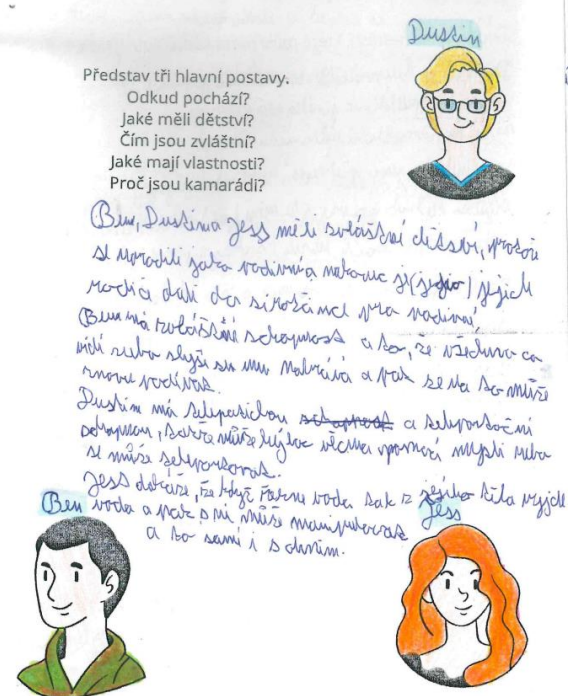 Dustin
Představ tři hlavní postavy.
Odkud pochází?
Jaké měli dětství?
Čím jsou zvláštní?
Jaké mají vlastnosti?
Proč jsou kamarádi?
Ben, Dustin a Jess měli zvláštní dětství, protože
se narodili jako podivní a nakonec je (jejich) jejich
rodiče dali do sirotčince pro podivné.
Ben má zvláštní schopnost a to, že všechno co
vidí nebo slyší se mu nahrává a pak se na to může
znovu podívat.
Dustin má telepatickou schopnost a teleportační
schopnost, takže může hýbat věcma pomocí mysli nebo
se může teleportovat.
Jess dokáže, že když řekne voda tak z jejího těla vyjde
Ben voda a pak s ní může manipulovat Jess
a to samí i s ohněm.